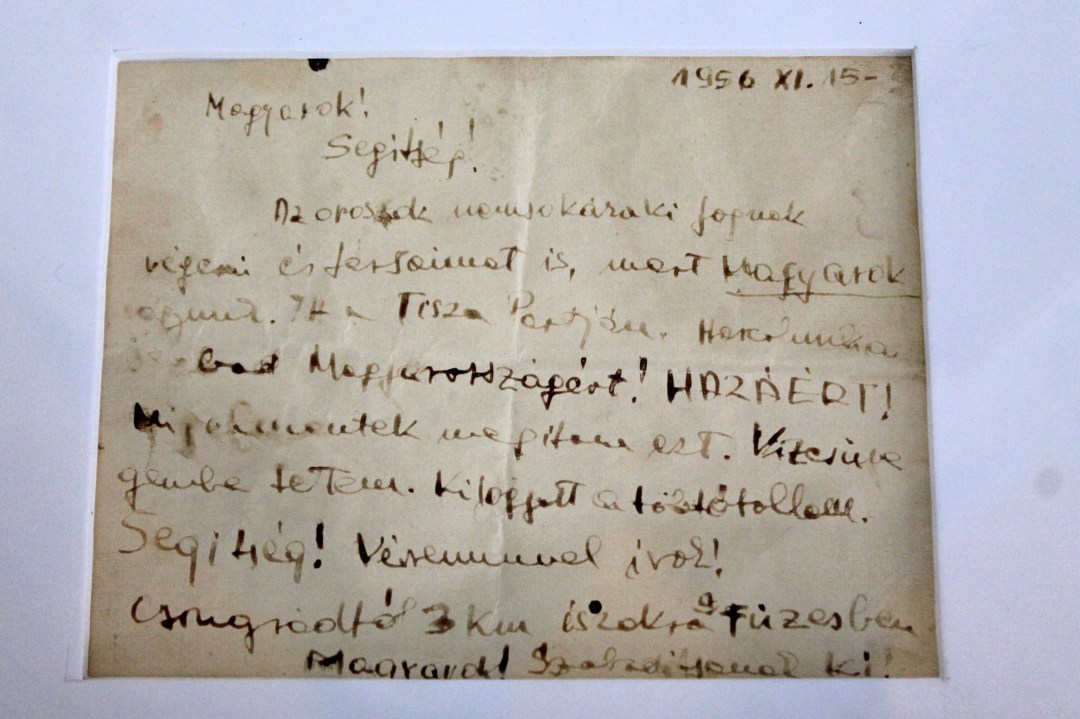 1956 XI. 15-
Magyarok!
Segitség!
Az oroszok nemsokára ki fognak
végezni és társaimat is, mert Magyarok
Itt a Tisza Partján.
Magyarországért! HAZÁÉRT!
megitam ezt. Vizesüve
gembe tetem. Kifogyott a töltőtollam.
Segitség! Véremmel irok!
Csongrádtól 3 km iszakra a Füzesben
Magyarok! Szabaditsanak ki!